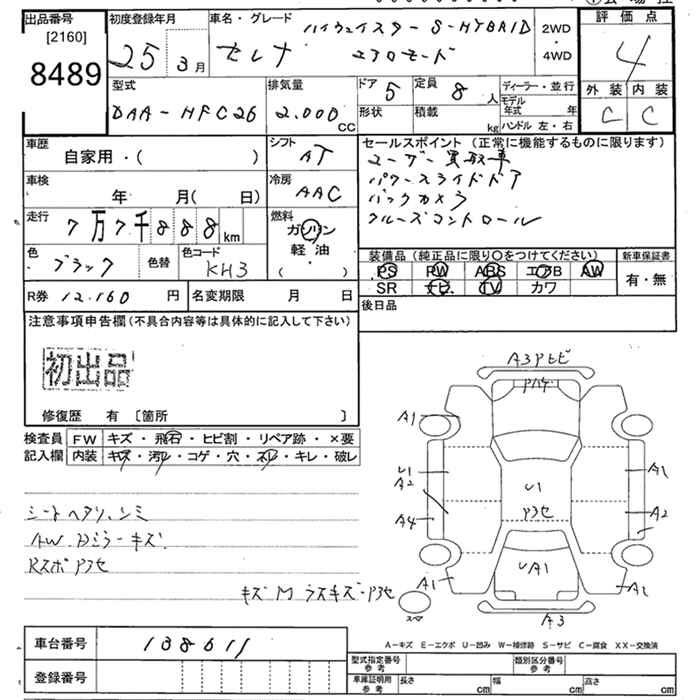 出品番号
[2160]
8489
初度登録年月
25 3月
車名・グレード
セレナ
ハイウェイスター S-HYBRID
エアロモード
2WD
4WD
評価点
4
外装 内装
C C
型式
DAA-HFC26
排気量
2.000 CC
ドア 5
形状
定員 8 人
積載 kg
ディーラー・並行
モデル年式 年
ハンドル 左・右
車歴
自家用・( )
シフト
AT
車検
年 月( 日)
冷房
AAC
走行
7万7千888km
燃料
ガソリン
軽油
( ・ )
色
ブラック
色替
色コード
KH3
R券 12.160 円
名変期限 月 日
セールスポイント (正常に機能するものに限ります)
ユーザー買取車
パワースライドドア
バックカメラ
クルーズコントロール
装備品 (純正品に限り○をつけてください)
PS PW ABS エアB AW
SR ナビ TV カワ
新車保証書
有・無
後日品
注意事項申告欄(不具合内容等は具体的に記入して下さい)
初出品
修復歴 有 〔箇所 〕
検査員
記入欄
FW キズ・飛石・ヒビ割・リペア跡・×要
内装 キズ・汚レ・コゲ・穴・スレ・キレ・破レ
シートヘタリ、シミ
AW. Dミラーキズ.
RスポP3セ
キズM ラスキズ・P3セ
A3Pヒビ
Pハゲ
A1
U1
A2
A4
A1
U1
P3セ
UA1
A1
A2
A3
スペア
A-キズ E-エクボ U-凹み W-補修跡 S-サビ C-腐食 XX-交換済
車台番号
138611
登録番号
型式指定番号
参考
類別区分番号
参考
車庫証明用
参考
長さ cm
幅 cm
高さ cm